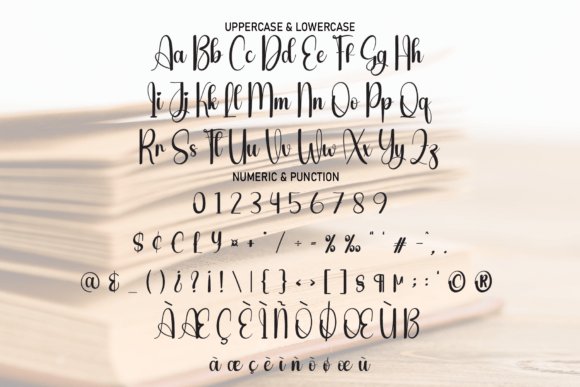 UPPERCASE & LOWERCASE
Aa Bb Cc Dd Ee Ff Gg Hh
Ii Jj Kk Ll Mm Nn Oo Pp Qq
Rr Ss Tt Uu Vv Ww Xx Yy Zz
NUMERIC & PUNCTION
0 1 2 3 4 5 6 7 8 9
$ ¢ £ ¥ ¤ + * / ÷ = % ‰ " ' # - , .
@ & _ ( ) ¿ ? ¡ ! \ | { } < > [ ] § ¶ ; : ' © ®
À Æ Ç È Ì Ñ Ò Ø Œ Ù
à æ ç è ì ñ ò ø œ ù